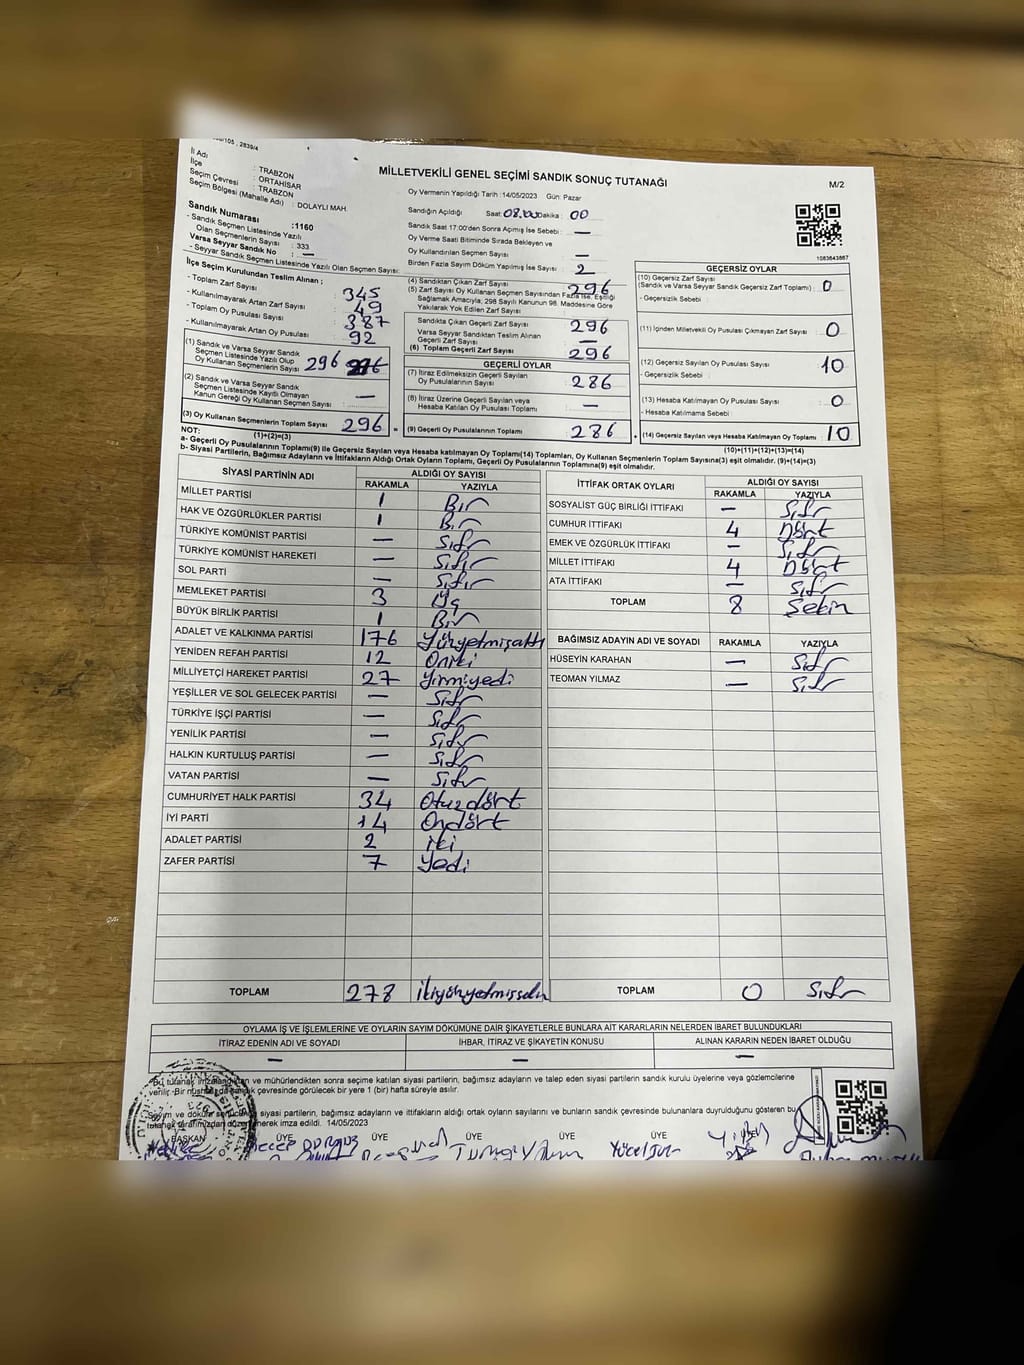 MİLLETVEKİLİ GENEL SEÇİMİ SANDIK SONUÇ TUTANAĞI
M/2
İl Adı : TRABZON
İlçe : ORTAHİSAR
Seçim Çevresi : TRABZON
Seçim Bölgesi (Mahalle Adı) : DOLAYLI MAH.
Sandık Numarası :1160
- Sandık Seçmen Listesinde Yazılı
Olan Seçmenlerin Sayısı : 333
Varsa Seyyar Sandık No : —
- Seyyar Sandık Seçmen Listesinde Yazılı Olan Seçmen Sayısı:
İlçe Seçim Kurulundan Teslim Alınan ;
- Toplam Zarf Sayısı : 345
- Kullanılmayarak Artan Zarf Sayısı : 49
- Toplam Oy Pusulası Sayısı : 387
- Kullanılmayarak Artan Oy Pusulası : 92
(1) Sandık ve Varsa Seyyar Sandık
Seçmen Listesinde Yazılı Olup
Oy Kullanan Seçmenlerin Sayısı 296
(2) Sandık ve Varsa Seyyar Sandık
Seçmen Listesinde Kayıtlı Olmayan
Kanun Gereği Oy Kullanan Seçmen Sayısı : —
(3) Oy Kullanan Seçmenlerin Toplam Sayısı 296
(1)+(2)=(3)
Oy Vermenin Yapıldığı Tarih : 14/05/2023 Gün: Pazar
Sandığın Açıldığı Saat: Dakika : 00
Sandık Saat 17:00'den Sonra Açımış İse Sebebi : —
Oy Verme Saati Bitiminde Sırada Bekleyen ve
Oy Kullandırılan Seçmen Sayısı : —
Birden Fazla Sayım Döküm Yapılmış İse Sayısı : 2
(4) Sandıktan Çıkan Zarf Sayısı : 296
(5) Zarf Sayısı Oy Kullanan Seçmen Sayısından Fazla İse, Eşitliği
Sağlamak Amacıyla, 298 Sayılı Kanunun 98. Maddesine Göre
Yakılarak Yok Edilen Zarf Sayısı :
Sandıkta Çıkan Geçerli Zarf Sayısı : 296
Varsa Seyyar Sandıktan Teslim Alınan
Geçerli Zarf Sayısı : —
(6) Toplam Geçerli Zarf Sayısı : 296
GEÇERLİ OYLAR
(7) İtiraz Edilmeksizin Geçerli Sayılan
Oy Pusulalarının Sayısı : 286
(8) İtiraz Üzerine Geçerli Sayılan veya
Hesaba Katılan Oy Pusulası Toplamı : —
(9) Geçerli Oy Pusulalarının Toplamı : 286
1083643867
GEÇERSİZ OYLAR
(10) Geçersiz Zarf Sayısı
(Sandık ve Varsa Seyyar Sandık Geçersiz Zarf Toplamı) : 0
- Geçersizlik Sebebi :
(11) İçinden Milletvekili Oy Pusulası Çıkmayan Zarf Sayısı : 0
(12) Geçersiz Sayılan Oy Pusulası Sayısı : 10
- Geçersizlik Sebebi :
(13) Hesaba Katılmayan Oy Pusulası Sayısı : 0
- Hesaba Katılmama Sebebi :
(14) Geçersiz Sayılan veya Hesaba Katılmayan Oy Toplamı : 10
(10)+(11)+(12)+(13)=(14)
NOT:
a- Geçerli Oy Pusulalarının Toplamı(9) ile Geçersiz Sayılan veya Hesaba katılmayan Oy Toplamı(14) Toplamları, Oy Kullanan Seçmenlerin Toplam Sayısına(3) eşit olmalıdır. (9)+(14)=(3)
b- Siyasi Partilerin, Bağımsız Adayların ve İttifakların Aldığı Ortak Oyların Toplamı, Geçerli Oy Pusulalarının Toplamına(9) eşit olmalıdır.
SİYASİ PARTİNİN ADI ALDIĞI OY SAYISI
RAKAMLA YAZIYLA
MİLLET PARTİSİ 1 Bir
HAK VE ÖZGÜRLÜKLER PARTİSİ 1 Bir
TÜRKİYE KOMÜNİST PARTİSİ — Sıfır
TÜRKİYE KOMÜNİST HAREKETİ — Sıfır
SOL PARTİ — Sıfır
MEMLEKET PARTİSİ 3 Üç
BÜYÜK BİRLİK PARTİSİ 1 Bir
ADALET VE KALKINMA PARTİSİ 176 Yüzyetmişaltı
YENİDEN REFAH PARTİSİ 12 Oniki
MİLLİYETÇİ HAREKET PARTİSİ 27 Yirmiyedi
YEŞİLLER VE SOL GELECEK PARTİSİ — Sıfır
TÜRKİYE İŞÇİ PARTİSİ — Sıfır
YENİLİK PARTİSİ — Sıfır
HALKIN KURTULUŞ PARTİSİ — Sıfır
VATAN PARTİSİ — Sıfır
CUMHURİYET HALK PARTİSİ 34 Otuzdört
İYİ PARTİ 14 Ondört
ADALET PARTİSİ 2 iki
ZAFER PARTİSİ 7 Yedi
TOPLAM 278 ikiyüzyetmişsekiz
İTTİFAK ORTAK OYLARI ALDIĞI OY SAYISI
RAKAMLA YAZIYLA
SOSYALİST GÜÇ BİRLİĞİ İTTİFAKI — Sıfır
CUMHUR İTTİFAKI 4 Dört
EMEK VE ÖZGÜRLÜK İTTİFAKI — Sıfır
MİLLET İTTİFAKI 4 Dört
ATA İTTİFAKI — Sıfır
TOPLAM 8 Sekiz
BAĞIMSIZ ADAYIN ADI VE SOYADI RAKAMLA YAZIYLA
HÜSEYİN KARAHAN — Sıfır
TEOMAN YILMAZ — Sıfır
TOPLAM 0 Sıfır
OYLAMA İŞ VE İŞLEMLERİNE VE OYLARIN SAYIM DÖKÜMÜNE DAİR ŞİKAYETLERLE BUNLARA AİT KARARLARIN NELERDEN İBARET BULUNDUKLARI
İTİRAZ EDENİN ADI VE SOYADI İHBAR, İTİRAZ VE ŞİKAYETİN KONUSU ALINAN KARARIN NEDEN İBARET OLDUĞU
— — —
Bu tutanak imzalandıktan ve mühürlendikten sonra seçime katılan siyasi partilerin, bağımsız adayların ve talep eden siyasi partilerin sandık kurulu üyelerine veya gözlemcilerine
verilir. Bir nüshası da sandık çevresinde görülecek bir yere 1 (bir) hafta süreyle asılır.
siyasi partilerin, bağımsız adayların ve ittifakların aldığı ortak oyların sayılarını ve bunların sandık çevresinde bulunanlara duyrulduğunu gösteren bu
tutanak tarafımızdan düzenlenerek imza edildi. 14/05/2023
BAŞKAN ÜYE ÜYE ÜYE ÜYE